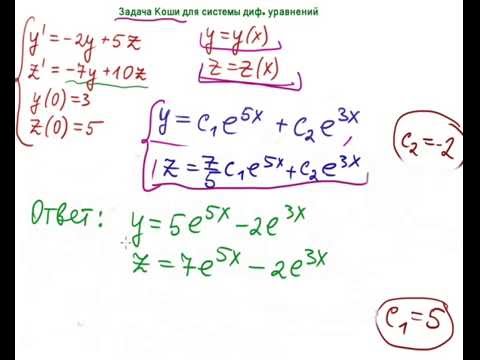 Задача Коши для системы диф. уравнений
y' = -2y + 5z
z' = -7y + 10z
y(0) = 3
z(0) = 5
y = y(x)
z = z(x)
y = c₁e^{5x} + c₂e^{3x},
z = 7/5 c₁e^{5x} + c₂e^{3x}
c₂ = -2
Ответ: y = 5e^{5x} - 2e^{3x}
z = 7e^{5x} - 2e^{3x}
c₁ = 5